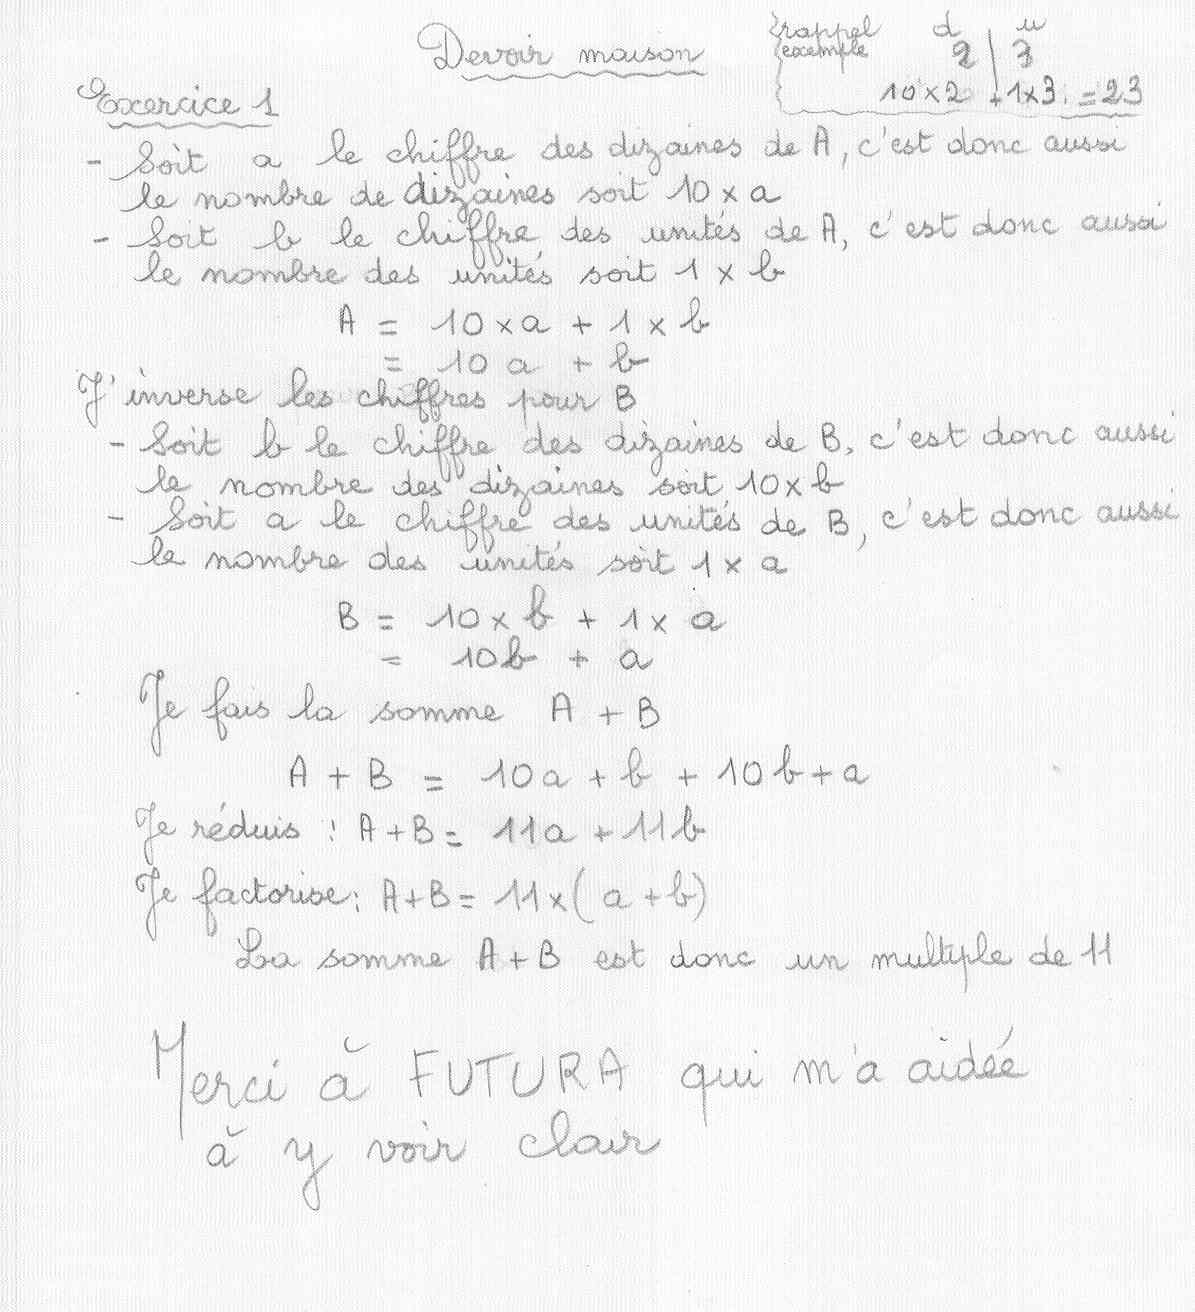 Devoir maison
rappel d | u
exemple 2 | 3
10 × 2 + 1 × 3 = 23
Exercice 1
- Soit a le chiffre des dizaines de A, c'est donc aussi
le nombre de dizaines soit 10 × a
- Soit b le chiffre des unités de A, c'est donc aussi
le nombre des unités soit 1 × b
A = 10 × a + 1 × b
= 10 a + b
J'inverse les chiffres pour B
- Soit b le chiffre des dizaines de B, c'est donc aussi
le nombre des dizaines soit 10 × b
- Soit a le chiffre des unités de B, c'est donc aussi
le nombre des unités soit 1 × a
B = 10 × b + 1 × a
= 10b + a
Je fais la somme A + B
A + B = 10a + b + 10b + a
Je réduis : A + B = 11a + 11b
Je factorise : A + B = 11 × (a + b)
La somme A + B est donc un multiple de 11
Merci à FUTURA qui m'a aidée
à y voir clair